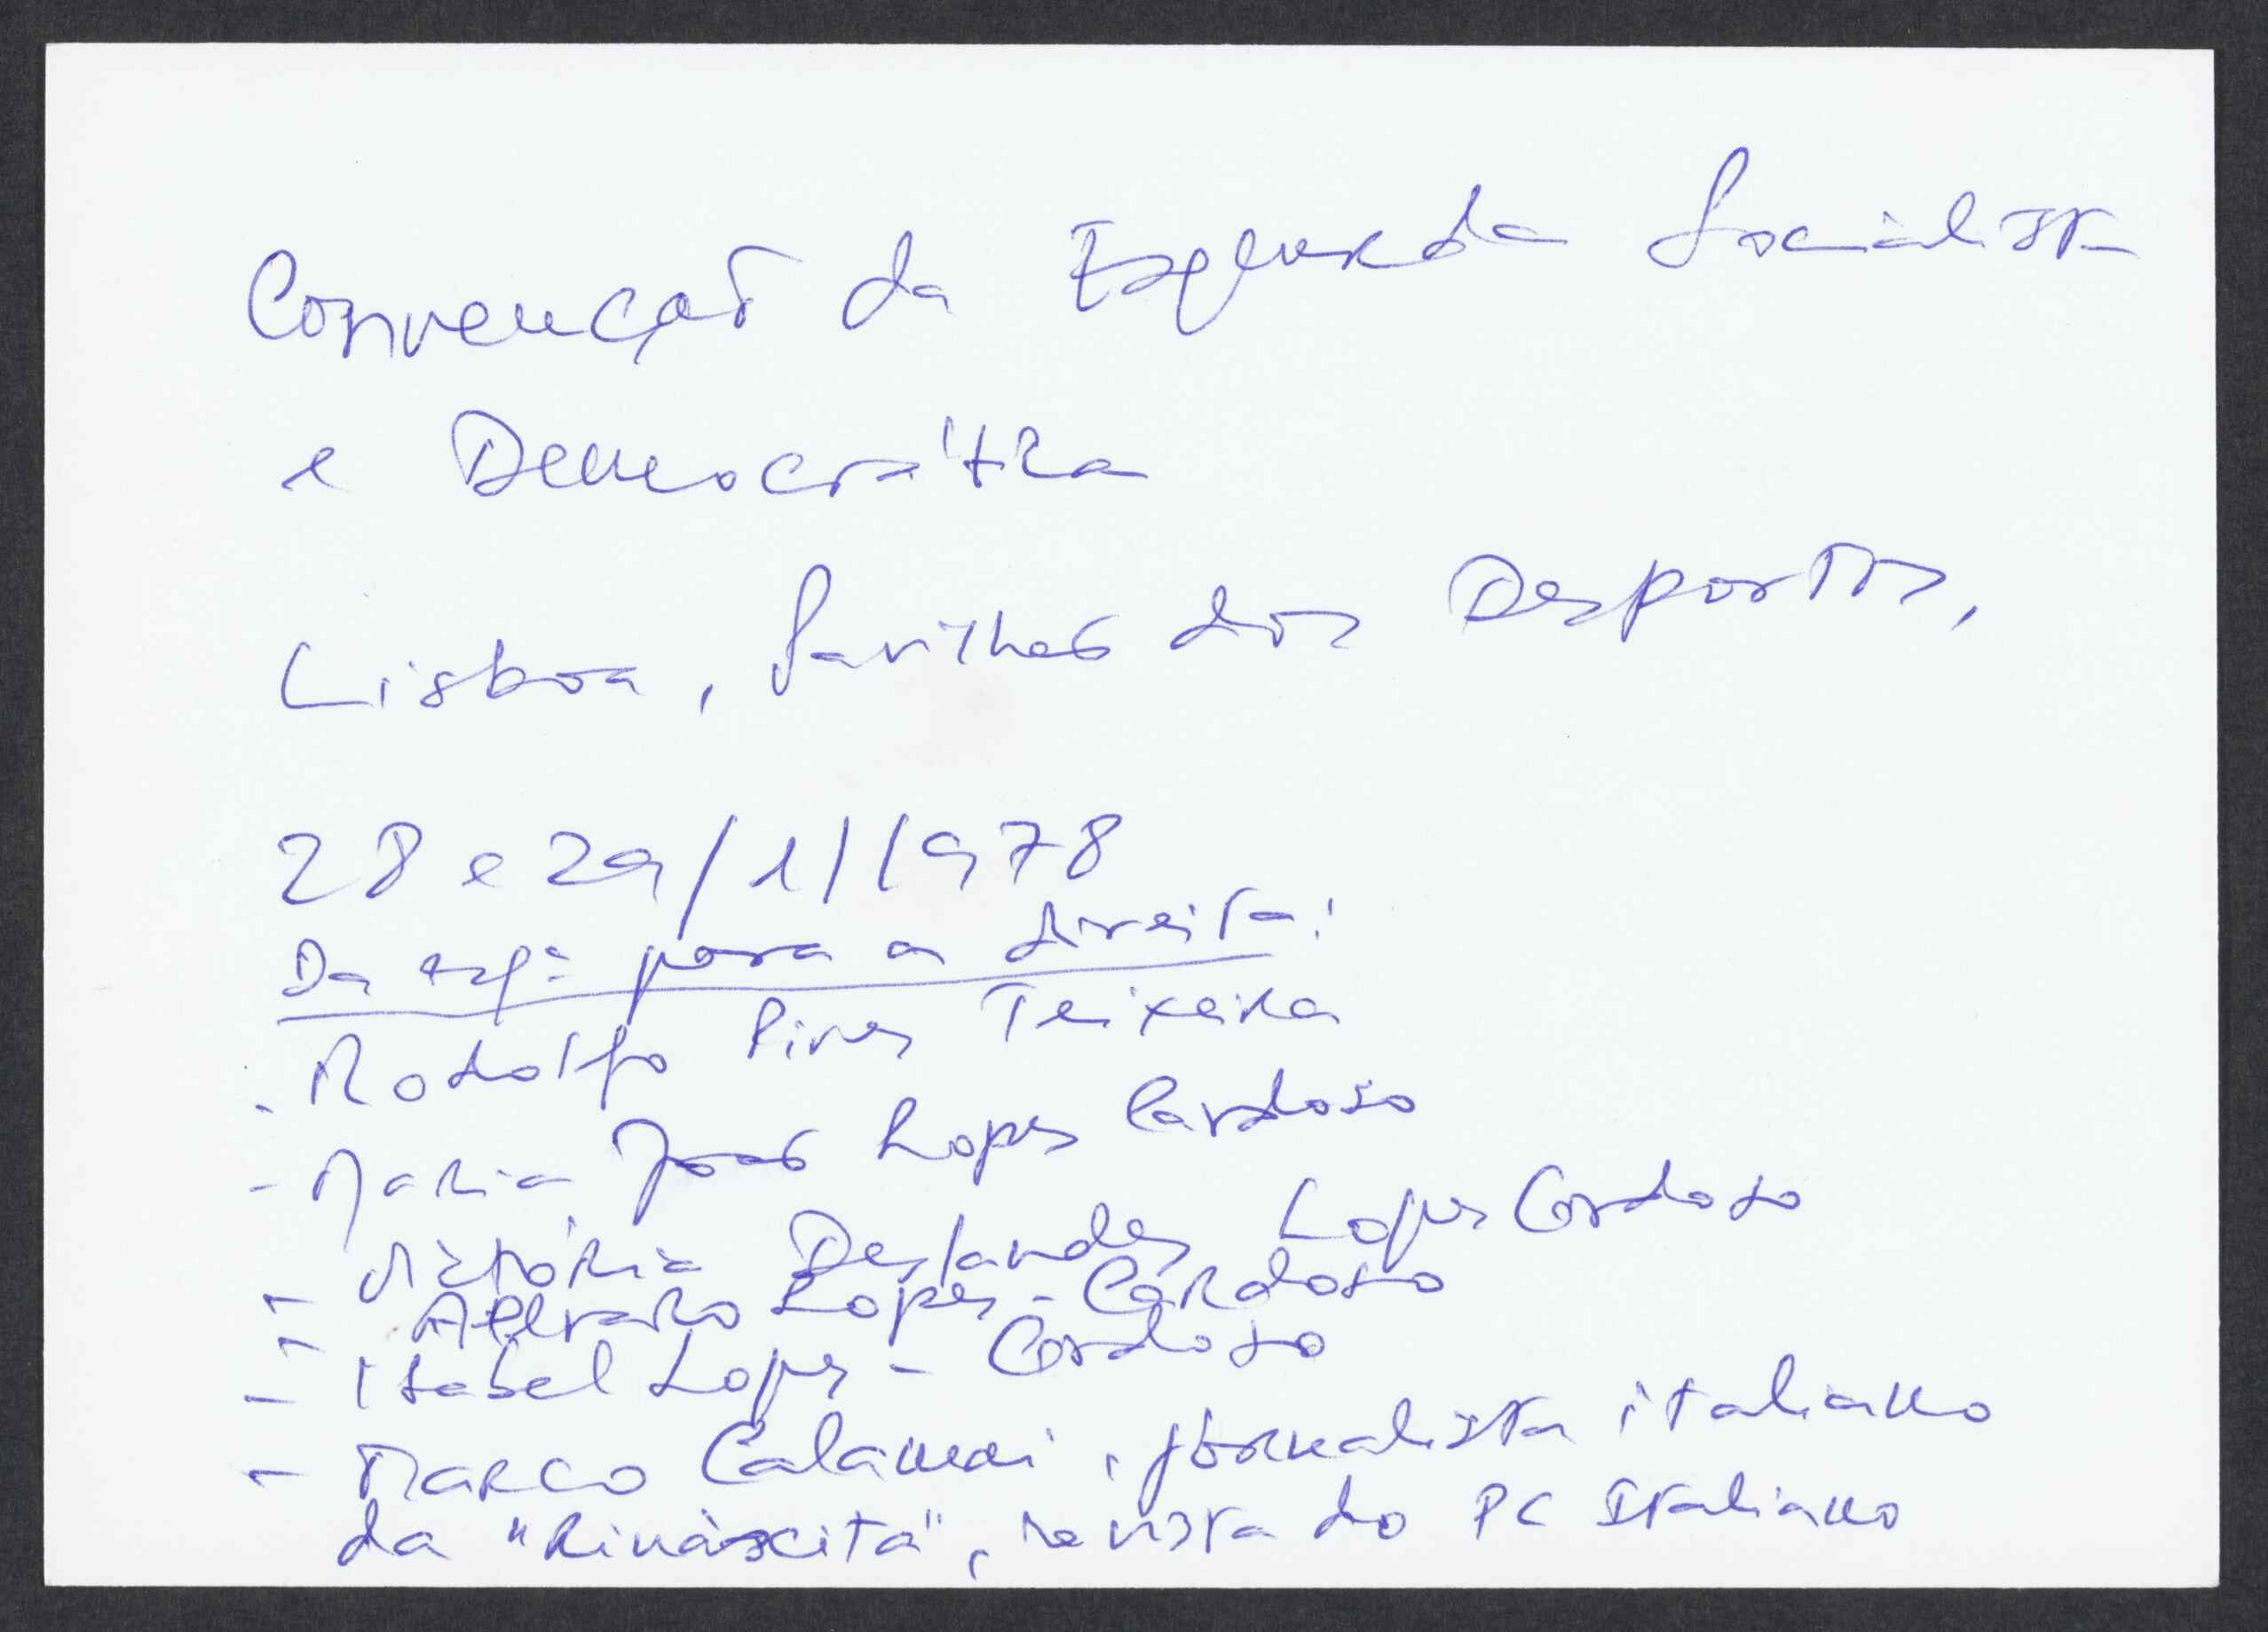 Convenção da Esquerda Socialista
e Democrática
Lisboa, Pavilhão dos Desportos,
28 e 29/1/1978
Da esqª para a direita:
- Rodolfo Pires Teixeira
- Maria João Lopes Cardoso
- Vitória Deslandes Lopes Cardoso
- Álvaro Lopes-Cardoso
- Isabel Lopes-Cardoso
- Marco Calamai, jornalista italiano
da "Rináscita", revista do PC Italiano